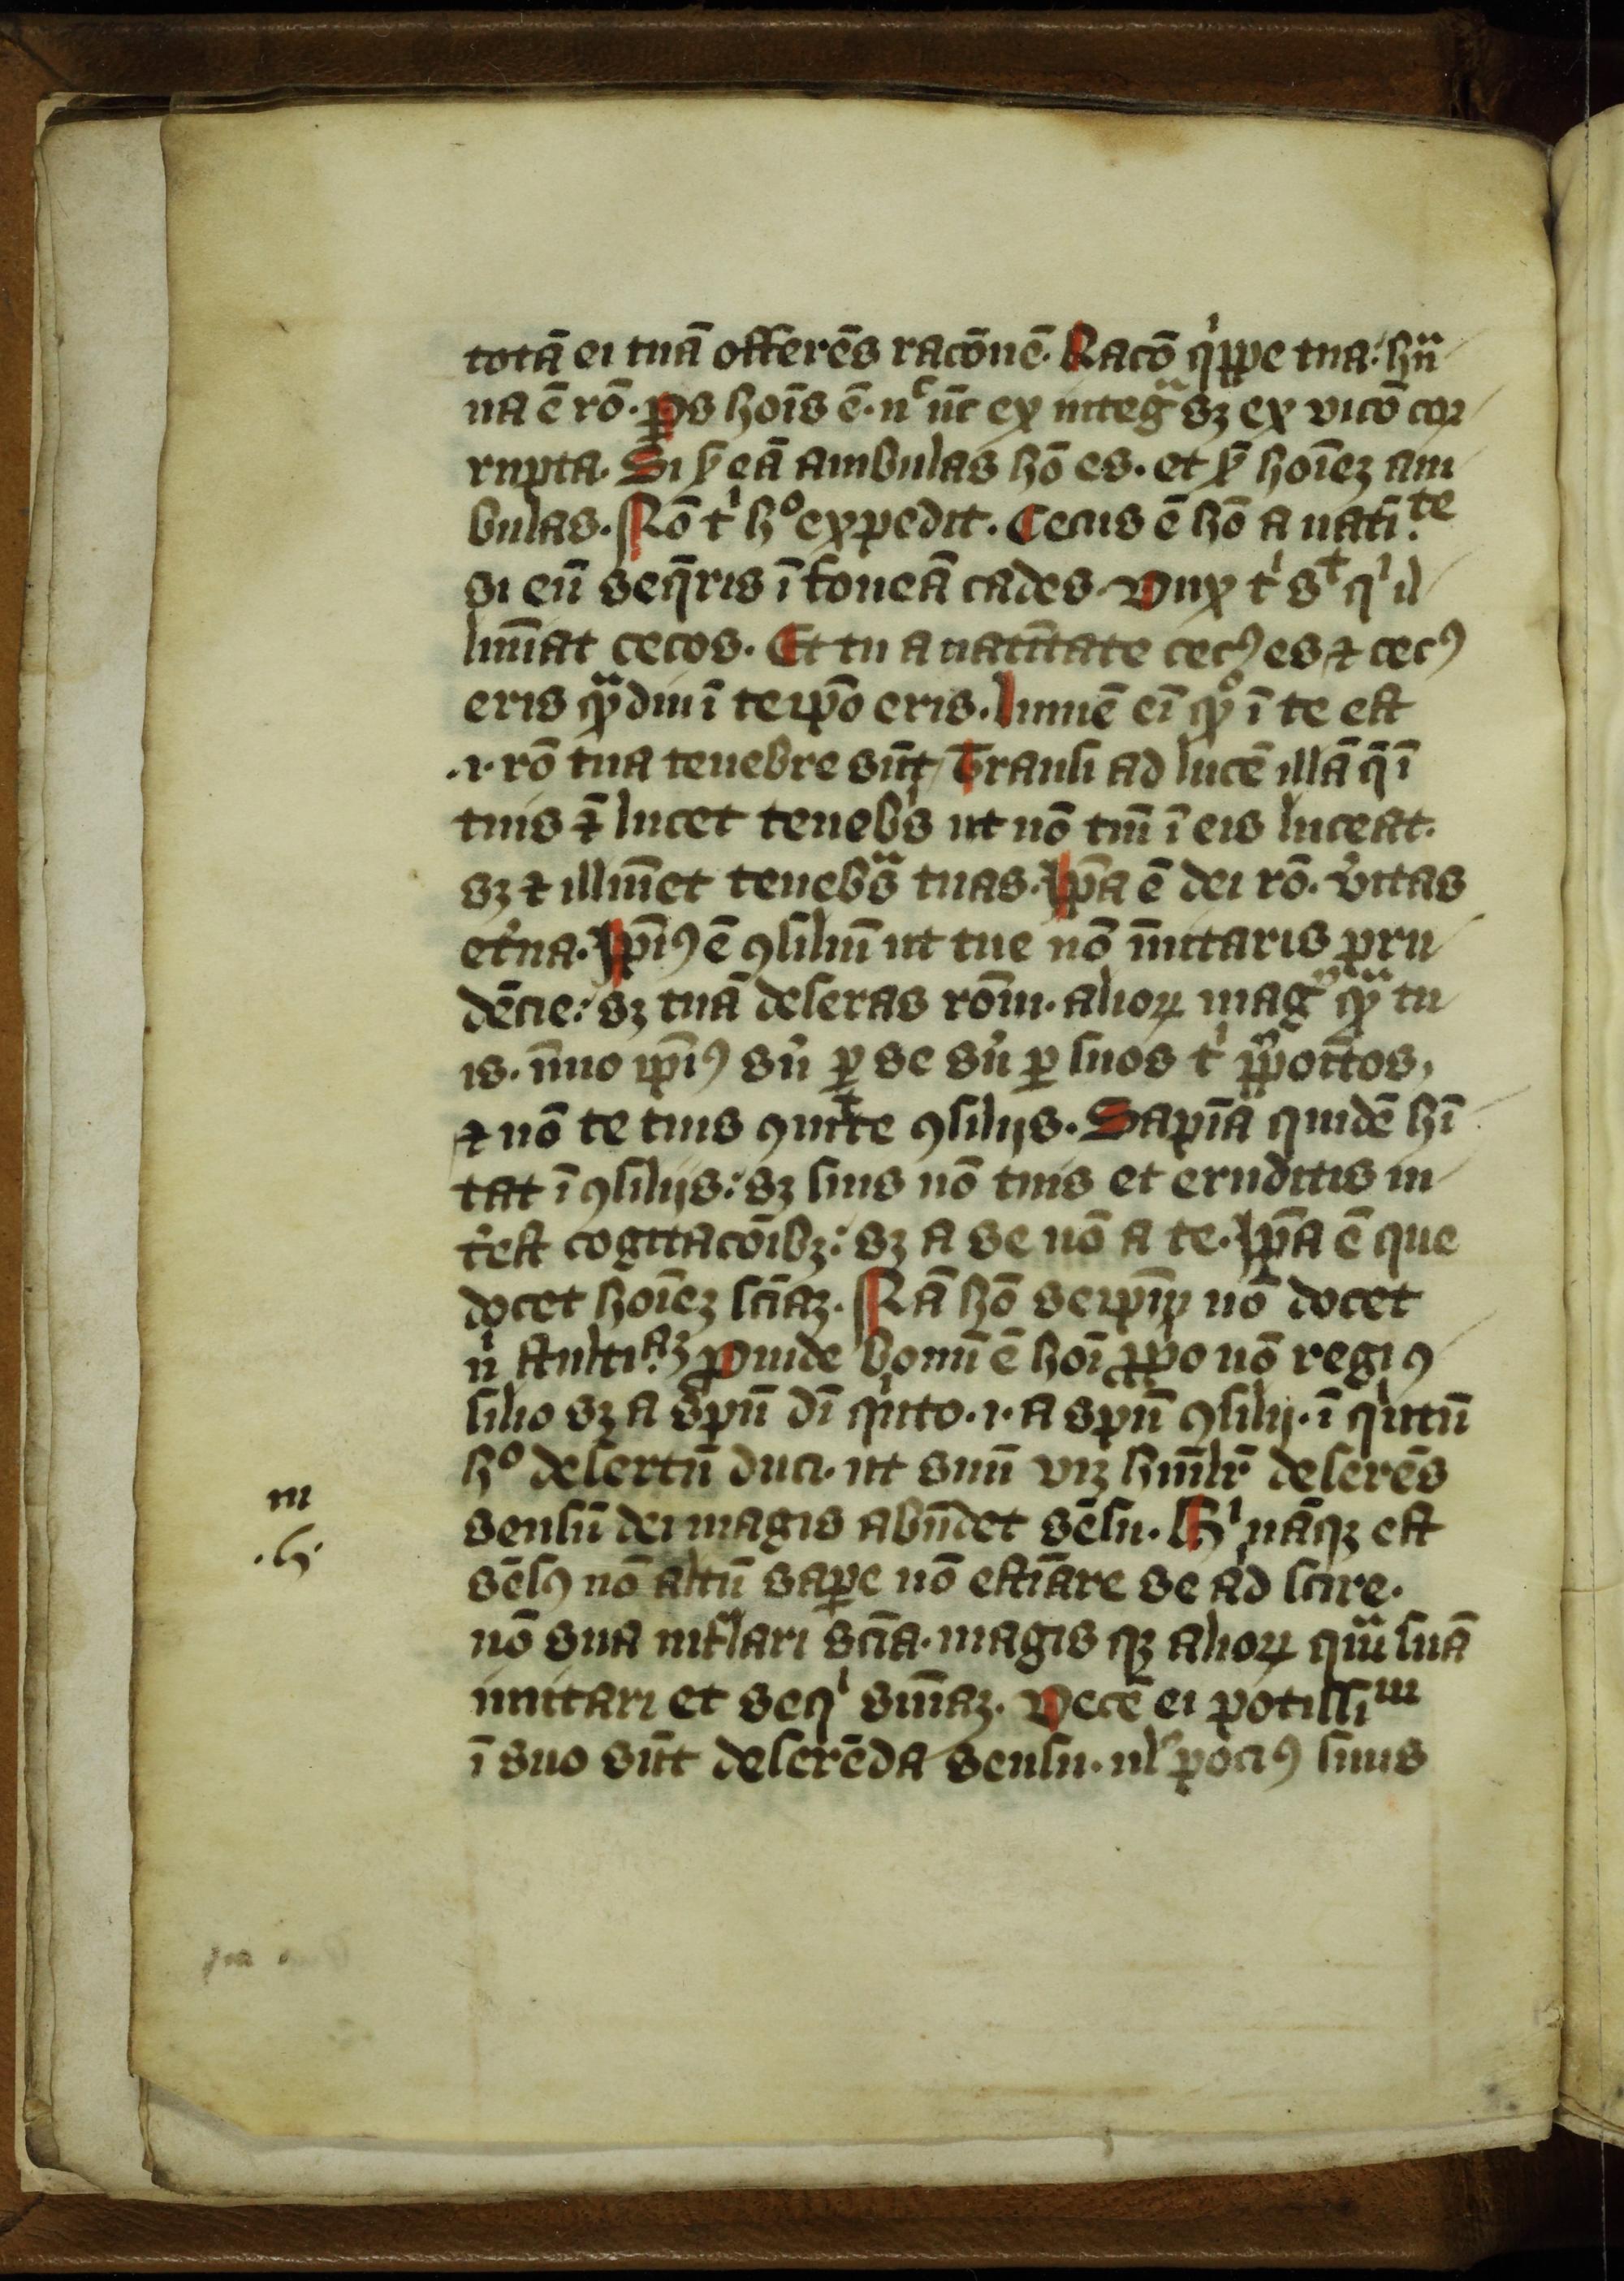 totā ei tuā offerēs racōnē. Racō qͥppe tua: hūᷓ
na ē rō. ps hoīs ē. nͨ nūc ex integᷓ sꝫ ex vicō cor
rupta. Si ẜm eā ambulas hō es. et ẜm hoīeꝫ am
bulas. Nō tͥ hͦ expedit. Cecus ē hō a natī.ᵗᵉ
si eū seq̄ris ī foueā cades. Dux tͥ sͭ qͥ il
lumīat cecos. Et tu a natītate cecꝰ es ⁊ cecꝰ
eris qᷓdiu ī teip̄o eris. lumē eī qͦ ī te est
.i. rō tua tenebre sūt Transi ad lucē illā q̄ ī
tuis ⁊ lucet tenebͥs ut nō tm̄ ī eis luceat.
sꝫ ⁊ illumīet tenebᷓs tuas. Ip̄a ē dei rō. v͛itas
et͛na. Ip̄iꝰ ē ꝯsiliū ut tue nō īnitaris pru
dēcie: sꝫ tuā deseras rōm. alioꝝ magͥ qᷓ tu
is. īmo ip̄iꝰ sū ꝑ se sū ꝑ suos tͥ ppoītos,
⁊ nō te tuis ꝯmitte ꝯsilijs. Sapīa quidē hī
tat ī ꝯsilijs: sꝫ suis nō tuis et eruditis in
t͛est cogitacōibꝫ: sꝫ a se nō a te. Ip̄a ē que
docet hoīeꝫ sciāꝫ. Nā hō seip̄m nō docet
nͥ stulti.ᵃꝫ Proinde bonū ē hoī p̄p̄o nō regi ꝯ
silio sꝫ a sp̄u dī qͥnto. i. a sp̄u ꝯsilij. ī qͥntū
hͦ desertū duci. ut suū viꝫ humīlr̄ deserēs
m
.h.
sensū dei magis abūdet sēsu. Hͥ nāqꝫ est
sēsꝰ nō altū saꝑe nō estīare se ad scire.
nō sua iactari scīa. magis qꝫ alioꝝ qᷓm suā
imitari et seqͥ snīaꝫ. Decē ei potissīᵐ
ī suo sūt deserēda sensu. ul̓ pociꝰ suus